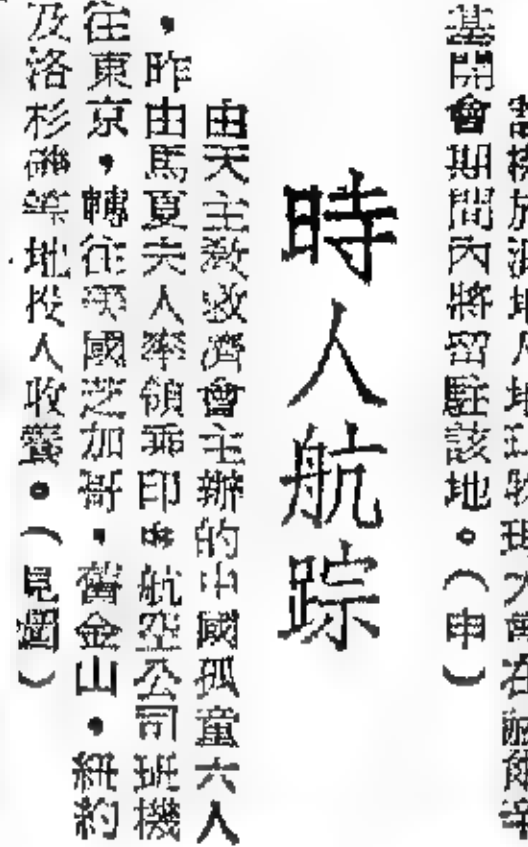 地球物理大會在
基開會期間內將留駐該地。（申）
時人航踪
由天主教救濟會主辦的中國孤童六人
，昨由馬夏夫人率領乘印航空公司班機
往東京，轉往美國芝加哥，舊金山，紐約
及洛杉磯等地投人收養。（見圖）